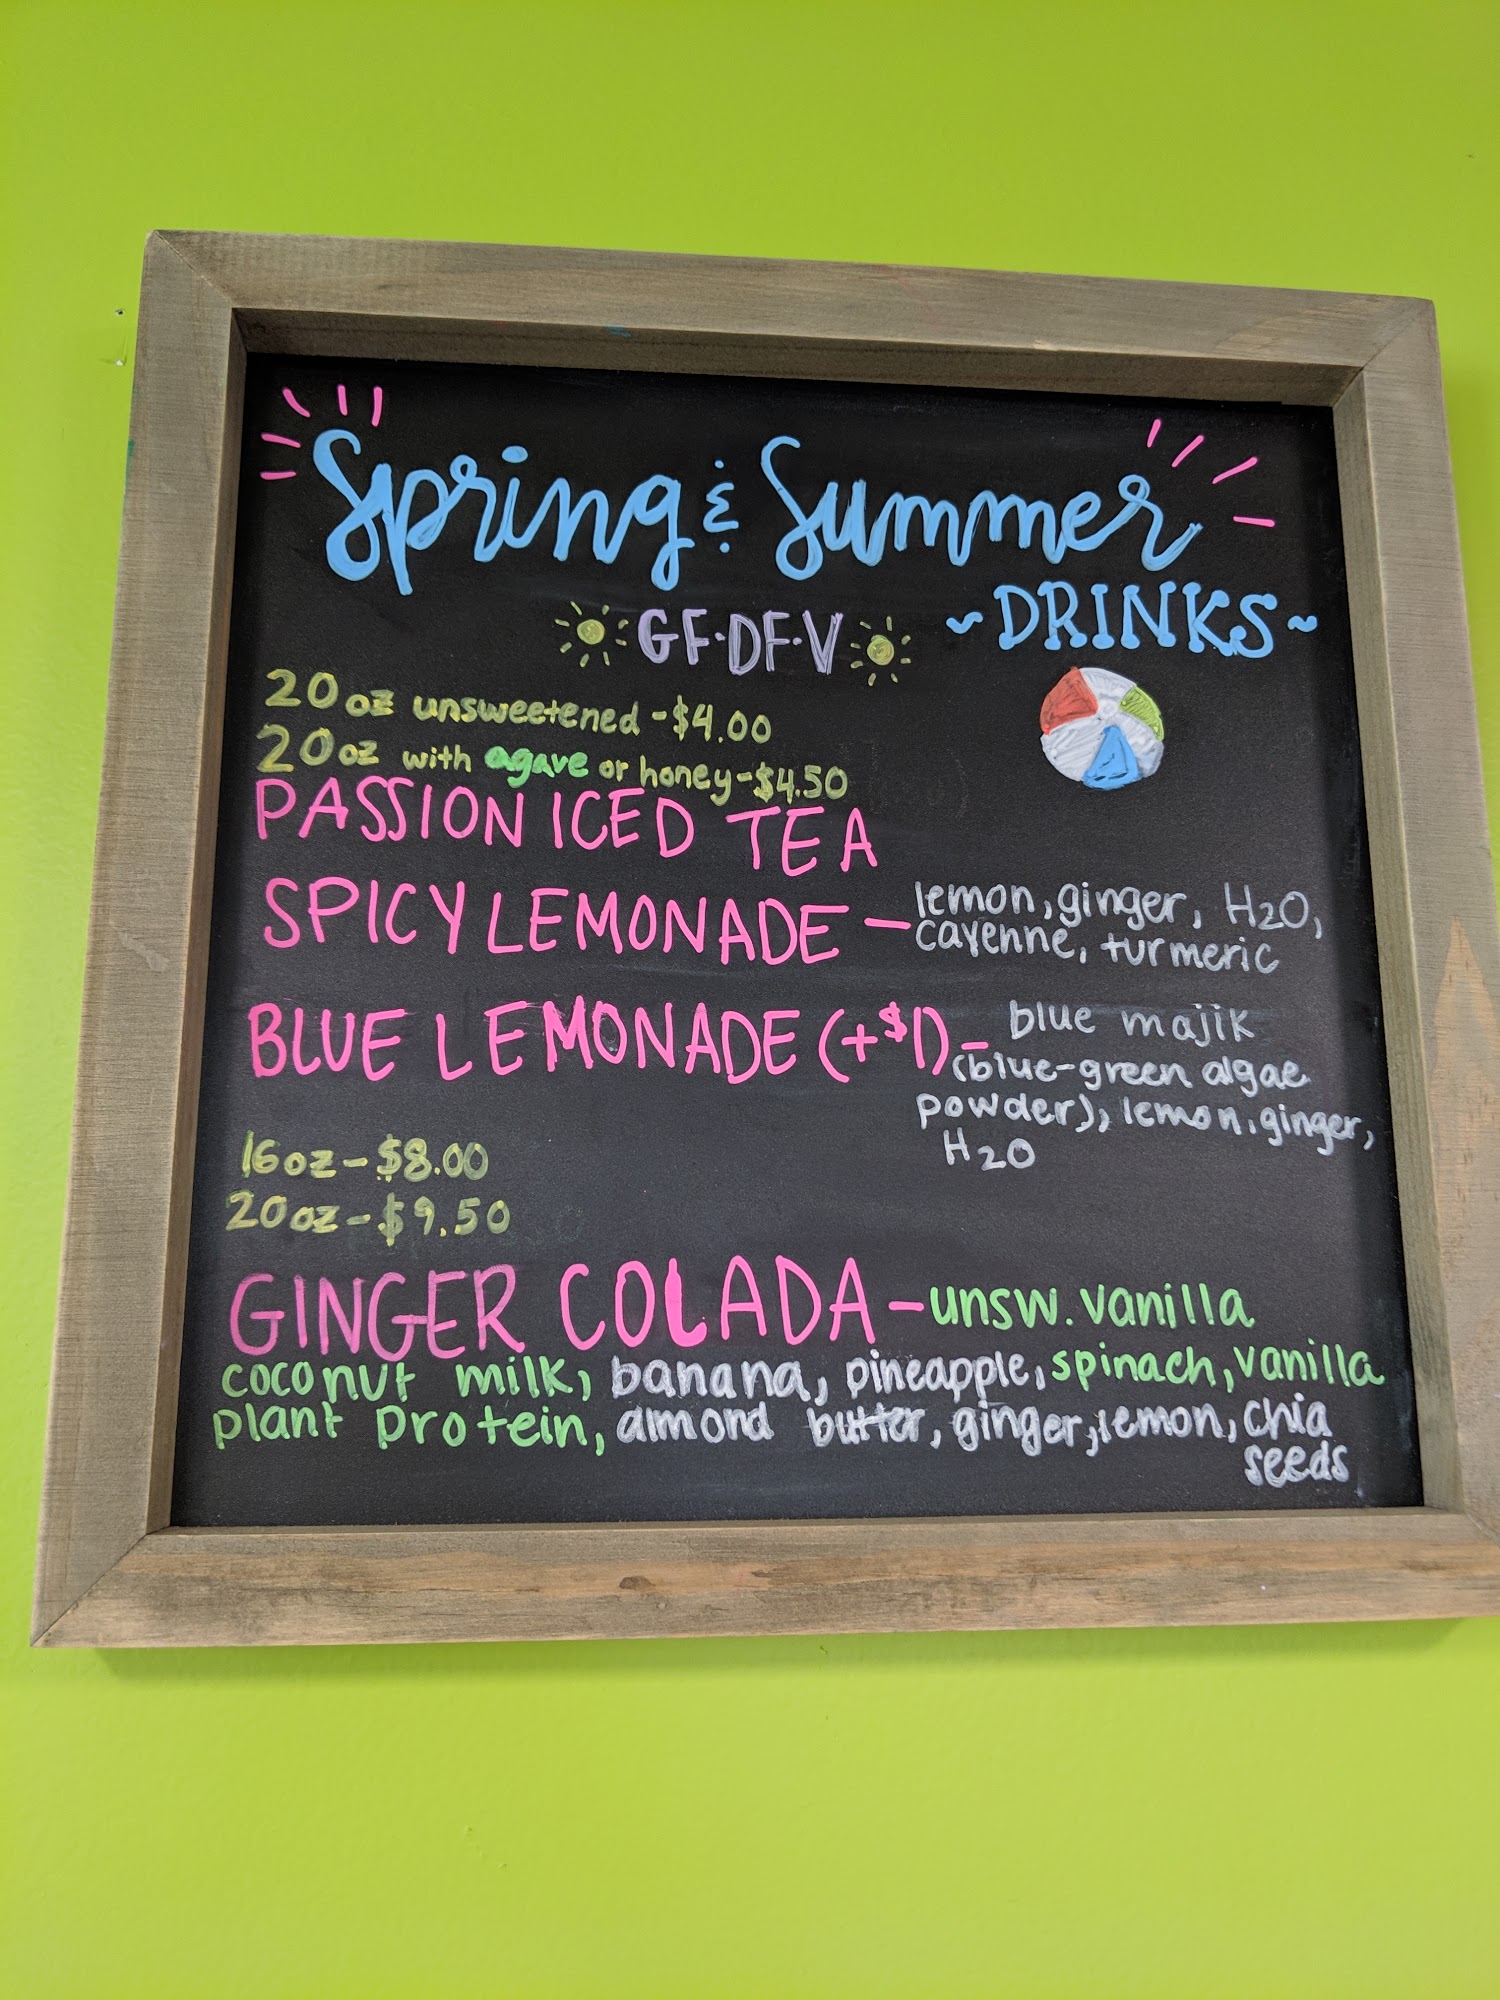 Spring & Summer
~DRINKS~
GF·DF·V
20oz unsweetened -$4.00
20oz with agave or honey-$4.50
PASSION ICED TEA
SPICY LEMONADE - lemon, ginger, H2O,
cayenne, turmeric
BLUE LEMONADE (+$1) - blue majik
(blue-green algae
powder), lemon, ginger,
H2O
16oz-$8.00
20oz-$9.50
GINGER COLADA - unsw. vanilla
coconut milk, banana, pineapple, spinach, vanilla
plant protein, almond butter, ginger, lemon, chia
seeds